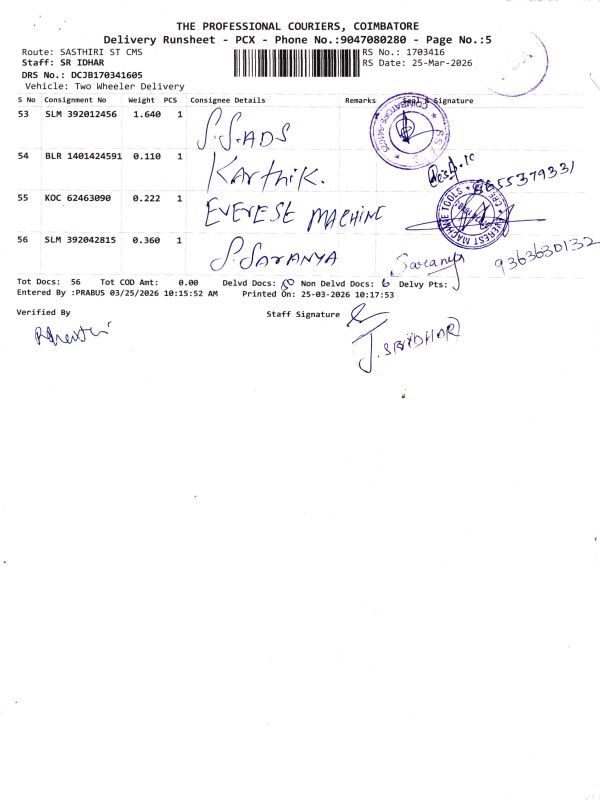 THE PROFESSIONAL COURIERS, COIMBATORE
Delivery Runsheet - PCX - Phone No.:9047080280 - Page No.:5
Route: SASTHIRI ST CMS RS No.: 1703416
Staff: SR IDHAR RS Date: 25-Mar-2026
DRS No.: DCJB170341605
Vehicle: Two Wheeler Delivery
S No Consignment No Weight PCS Consignee Details Remarks Seal & Signature
53 SLM 392012456 1.640 1 S.S.ADS
54 BLR 1401424591 0.110 1 Karthik.
8655379331
55 KOC 62463090 0.222 1 EVEREST MACHINE
EVEREST MACHINE TOOLS
56 SLM 392042815 0.360 1 S.SARANYA Saranya 9363630132
Tot Docs: 56 Tot COD Amt: 0.00 Delvd Docs: 50 Non Delvd Docs: 6 Delvy Pts:
Entered By :PRABUS 03/25/2026 10:15:52 AM Printed On: 25-03-2026 10:17:53
Verified By Staff Signature
J.SRIDHAR